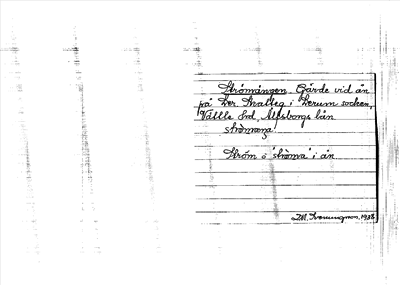 Strömängen. Gärde vid ån
på Ler Skatteg i Lerum socken,
Vättle hd, Älfsborgs län
strömäna.
Ström o "ströma" i ån
1938